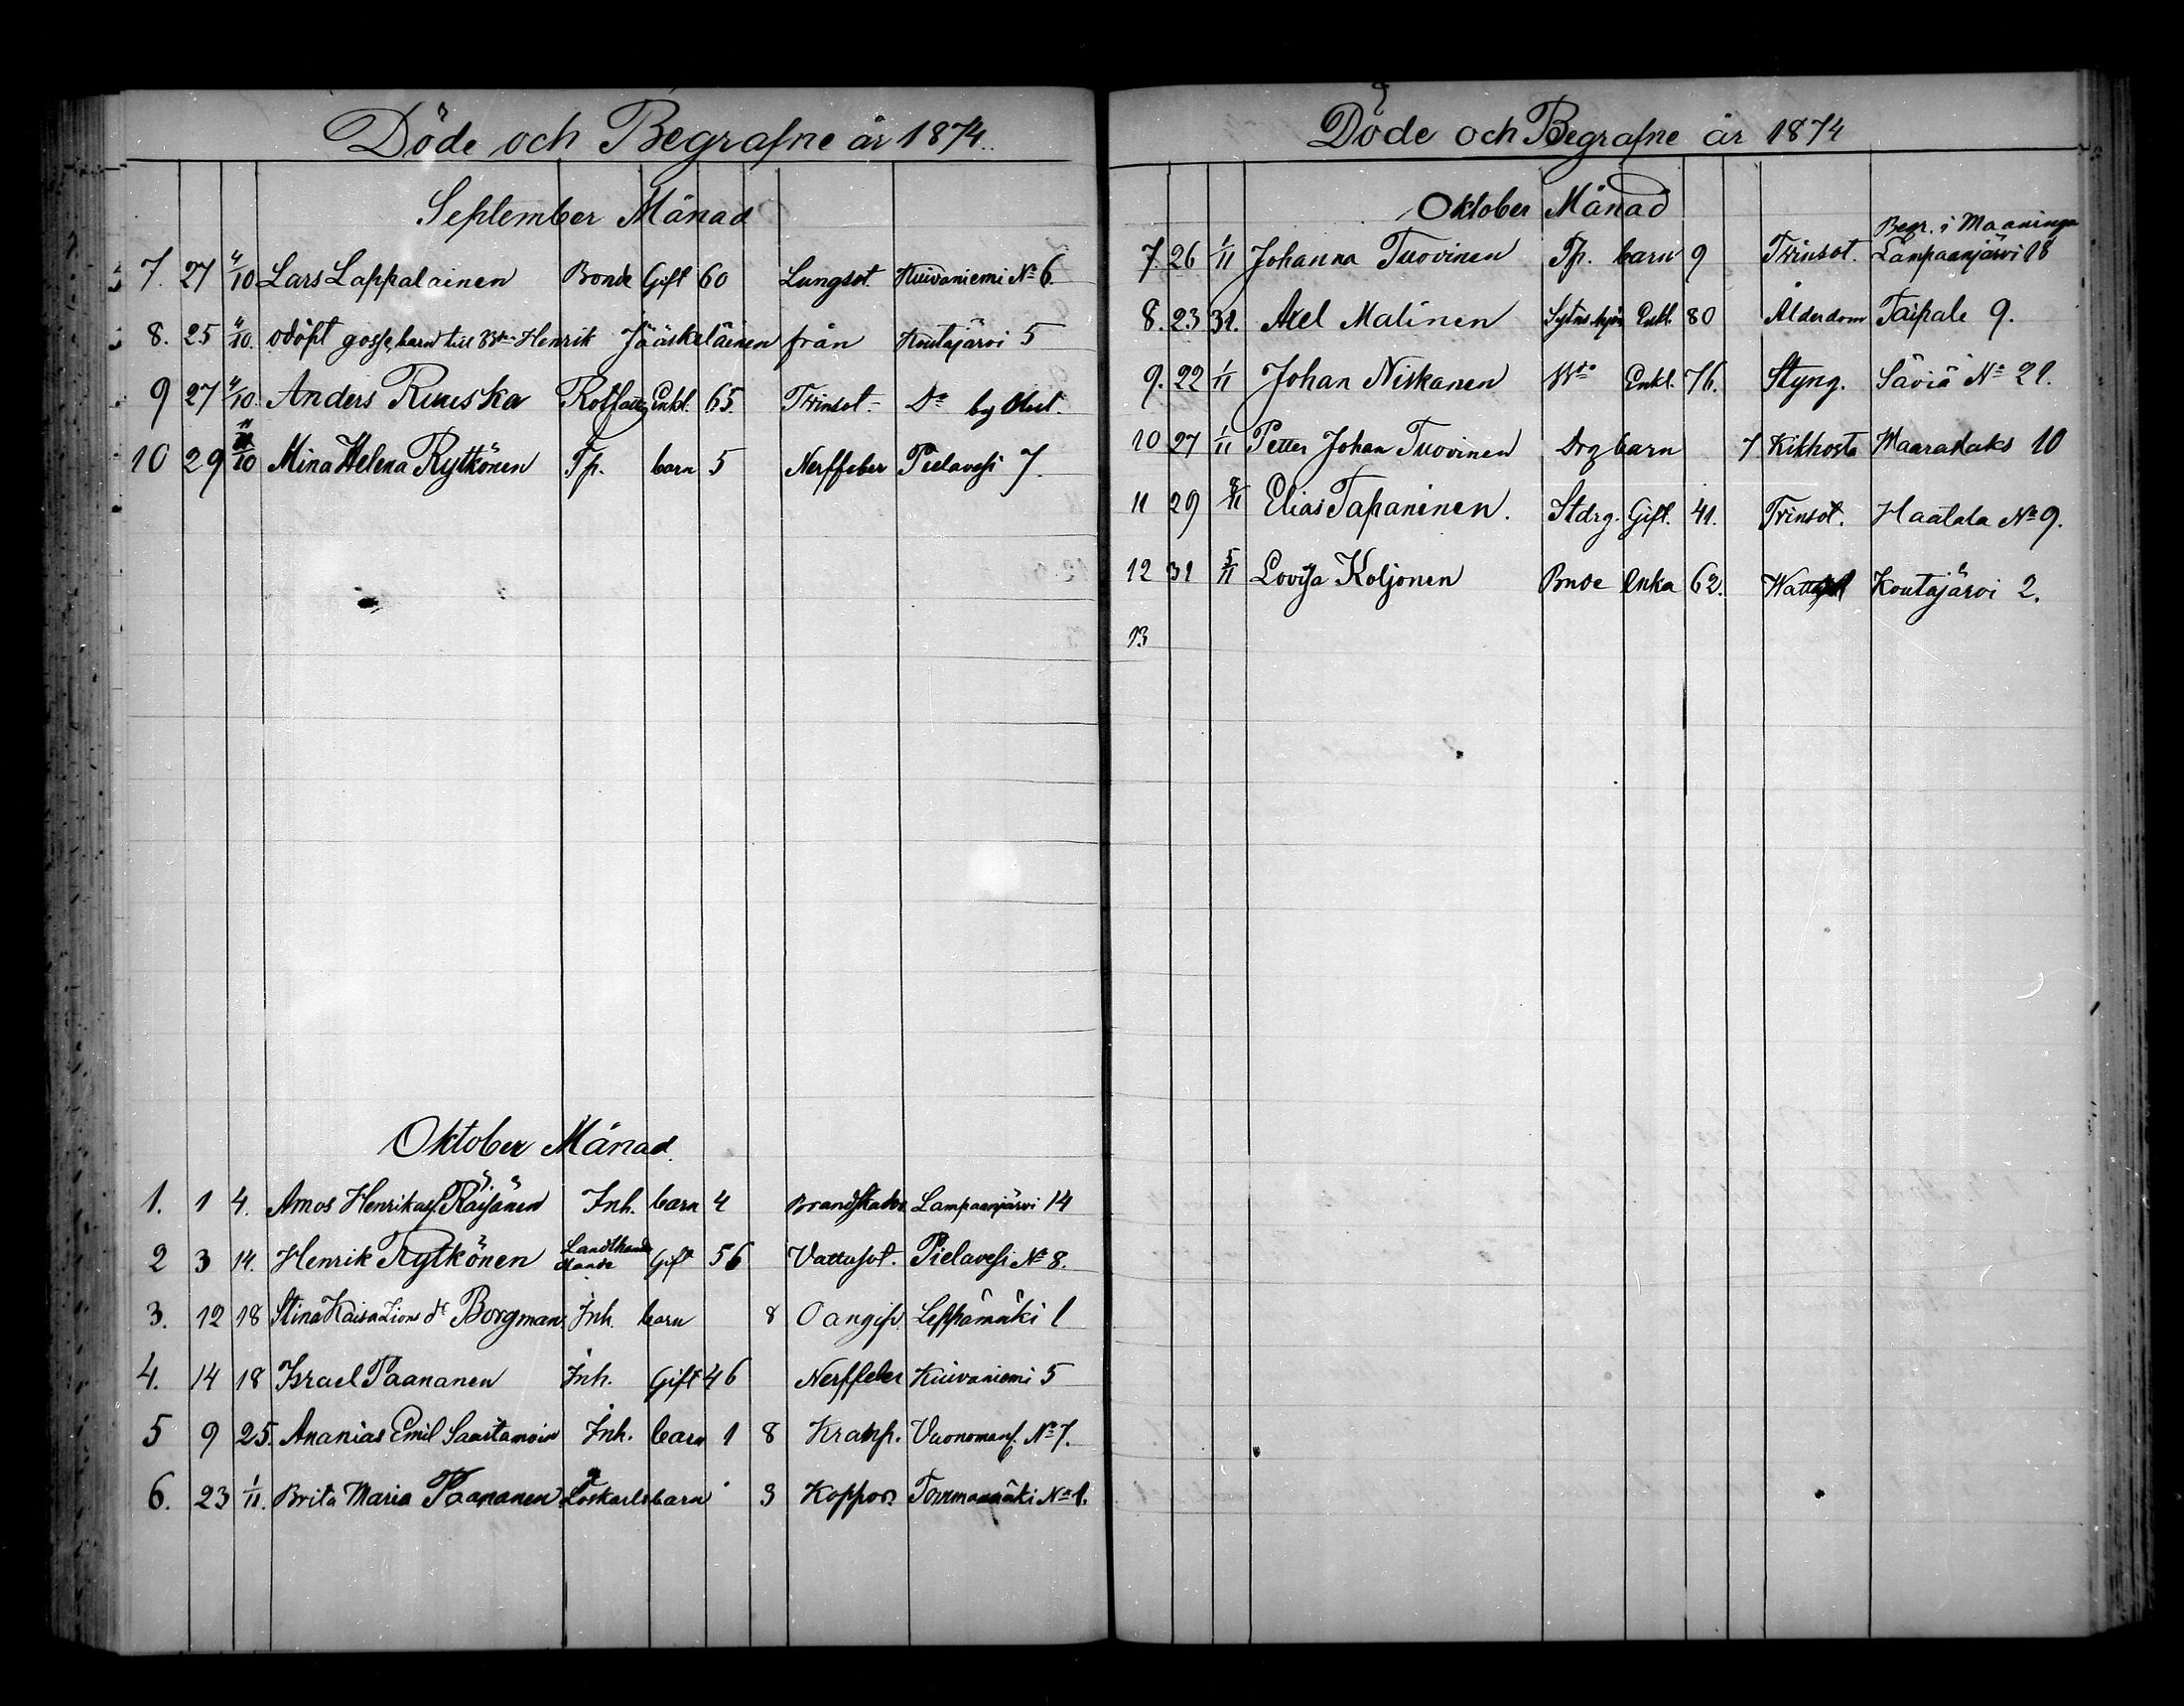 Döde och Begrafne år 1874.
September Månad
7. 27 4/10 Lars Lappalainen Bonde Gift 60 Lungsot. Kuivaniemi No 6.
8. 25 4/10. odöpt gosse, barn till Bde Henrik Jääskeläinen från Koutajärvi 5
9 27 4/10. Anders Ruuska Enkl. 65. Trinsot. Do by
10 29 11/10 Mina Helena Rytkönen Tp. barn 5 Nerffeber Pielavesi 7.
Oktober Månad.
1. 1 4. Amos Henrikass. Räisänen Inh. barn 4 Lampaanjärvi 14
2 3 14. Henrik Rytkönen Landthandlande Gift 56 Vattusot. Pielavesi No 8.
3. 12 18 Stina Kaisa Lions dr Borgman Inh. barn 8 Oangifv. Leppämäki 1
4. 14 18 Israel Paananen Inh. Gift 46 Nerffeber Kuivaniemi 5
5 9 25. Ananias Emil Saastamoin Inh. barn 1 8 Kramp. No 7.
6. 23 1/11. Brita Maria Paananen Löskarls barn 3 Koppor Tommanmäki No 1.
Döde och Begrafne år 1874
Oktober Månad
Begr. i Maaninga
7. 26 1/11 Johanna Tuovinen Tp. barn 9 Trinsot. Lampaanjärvi 18
8. 23 31. Axel Malinen Sytnshjon Enkl. 80 Ålderdom Taipale 9.
9. 22 1/11 Johan Niskanen Bde Enkl. 76. Styng. Säviä No 21.
10 27 1/11 Petter Johan Tuovinen Drg barn 7 Kikhosta Maaralaks 10
11 29 8/11 Elias Tapaninen. Stdrg. Gift. 41. Trinsot. Haatala No 9.
12 31 5/11 Lovisa Koljonen Bnde Enka 62. Koutajärvi 2.
13